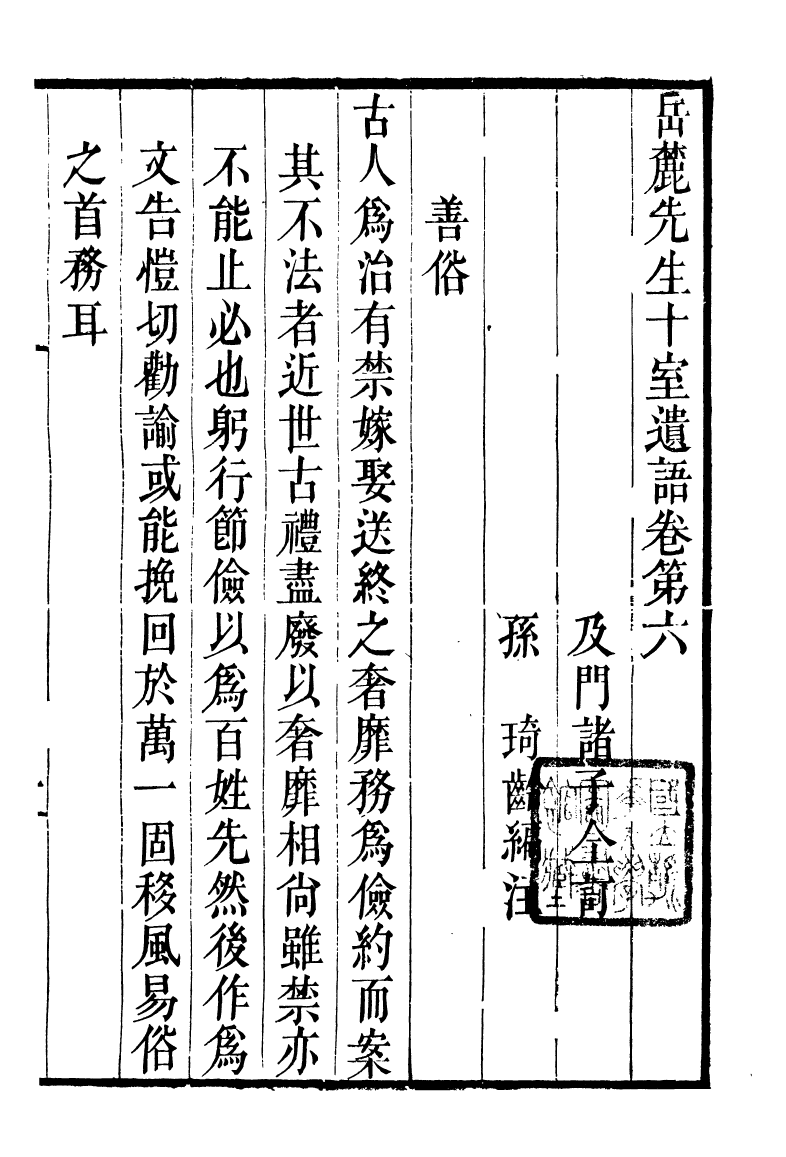 岳麓先生十室遺語卷第六
及門諸子仝訂
孫　琦齡編注
善俗
古人爲治有禁嫁娶送終之奢靡務爲儉約而案
其不法者近世古禮盡廢以奢靡相尙雖禁亦
不能止必也躬行節儉以爲百姓先然後作爲
文告愷切勸諭或能挽回於萬一固移風易俗
之首務耳